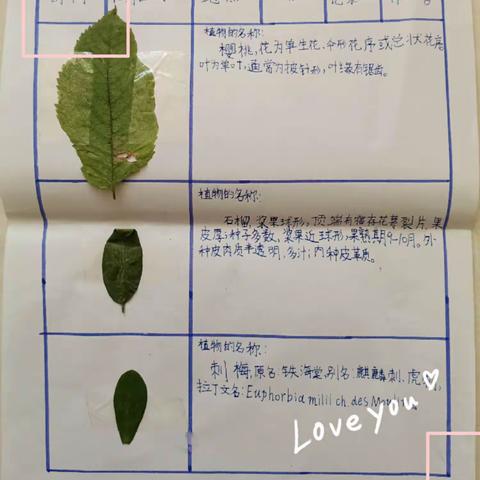 植物的名称:
樱桃,花为单生花、伞形花序或总状花序
叶为单叶,通常为披针形,叶缘有锯齿。
植物的名称:
石榴,浆果球形,顶端有宿存花萼裂片,果
皮厚;种子多数,浆果近球形,果熟期9-10月。外
种皮肉质半透明,多汁;内种皮革质。
植物的名称:
刺梅,原名:铁海棠,别名:麒麟刺、虎
拉丁文名:Euphorbia milii ch. des Moul
Love you